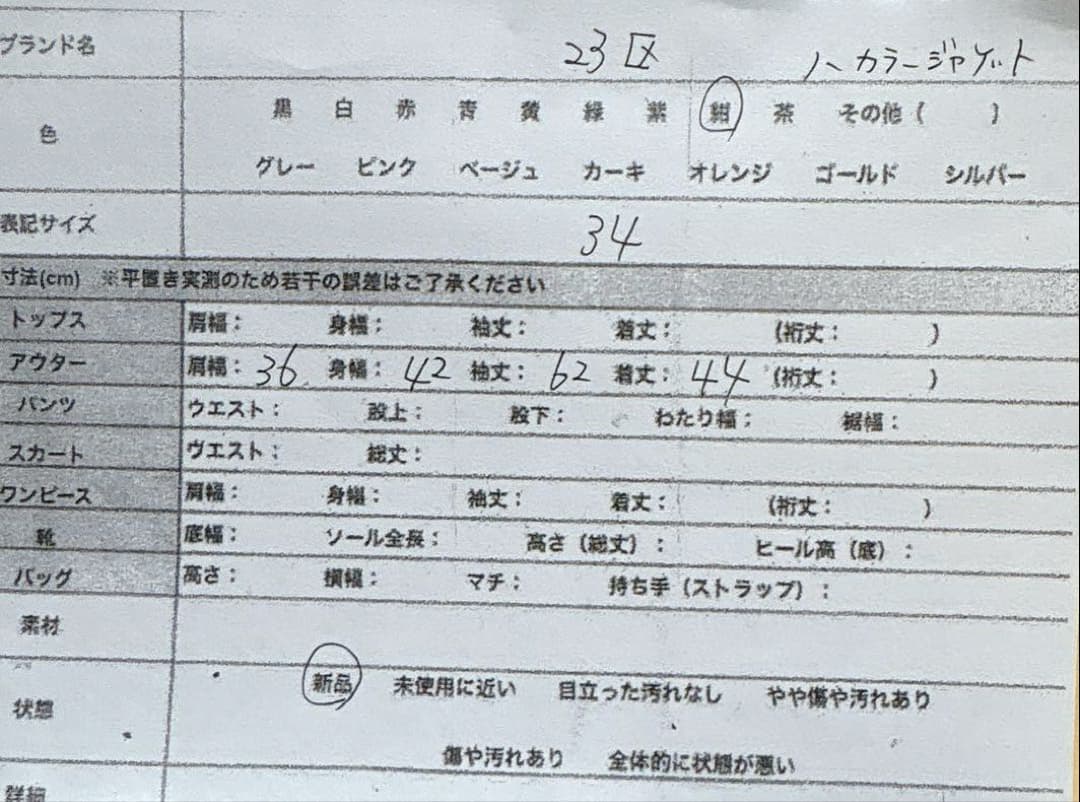 ブランド名 23区 ノーカラージャケット
色 黒 白 赤 青 黄 緑 紫 紺 茶 その他（ ）
グレー ピンク ベージュ カーキ オレンジ ゴールド シルバー
表記サイズ 34
寸法(cm) ※平置き実測のため若干の誤差はご了承ください
トップス 肩幅： 身幅： 袖丈： 着丈： （裄丈： ）
アウター 肩幅：36 身幅：42 袖丈：62 着丈：44 （裄丈： ）
パンツ ウエスト： 股上： 股下： わたり幅： 裾幅：
スカート ヴエスト： 総丈：
ワンピース 肩幅： 身幅： 袖丈： 着丈： （裄丈： ）
靴 底幅： ソール全長： 高さ（総丈）： ヒール高（底）：
バッグ 高さ： 横幅： マチ： 持ち手（ストラップ）：
素材
状態 新品 未使用に近い 目立った汚れなし やや傷や汚れあり
傷や汚れあり 全体的に状態が悪い
詳細